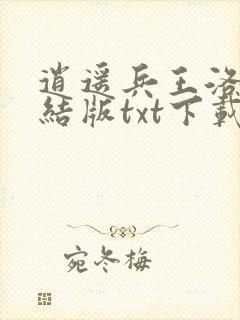 逍遥兵王洛
結版txt下載
宛冬梅